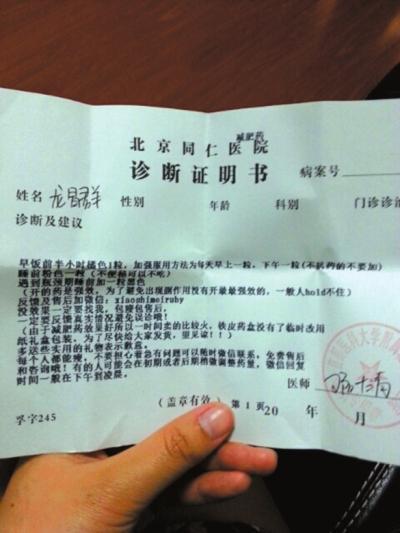 减肥药
北京同仁医院
诊断证明书
病案号
姓名 龙 性别 年龄 科别 门诊诊
诊断及建议
早饭前半小时橘色1粒，加强服用方法为每天早上一粒，下午一粒(不抗药的不要加)
睡前粉色一粒(不便秘可以不吃)
遇到瓶颈期睡前加一粒黑色
(开的药是强效，为了避免出现副作用没有开最最强效的，一般人hold不住)
反馈及售后加微信：xiaoshimeiruby
没效果一定要找我，包瘦包售后，
一定要反馈真实情况避免误诊哦!
(由于减肥药效果好所以一时间卖的比较火，铁皮药盒没有了临时改用
纸礼盒包装，为了尽快给大家发货，望见谅!!)
多送些实用的礼物表示歉意，
每个人都能瘦，不要担心着急有问题可以随时微信联系，免费售后
和咨询哦!有的人可能会在初期或者后期稍微调整药量，微信回复
时间一般在下午到凌晨。
医师
(盖章有效) 第1页 20 年 月
字245